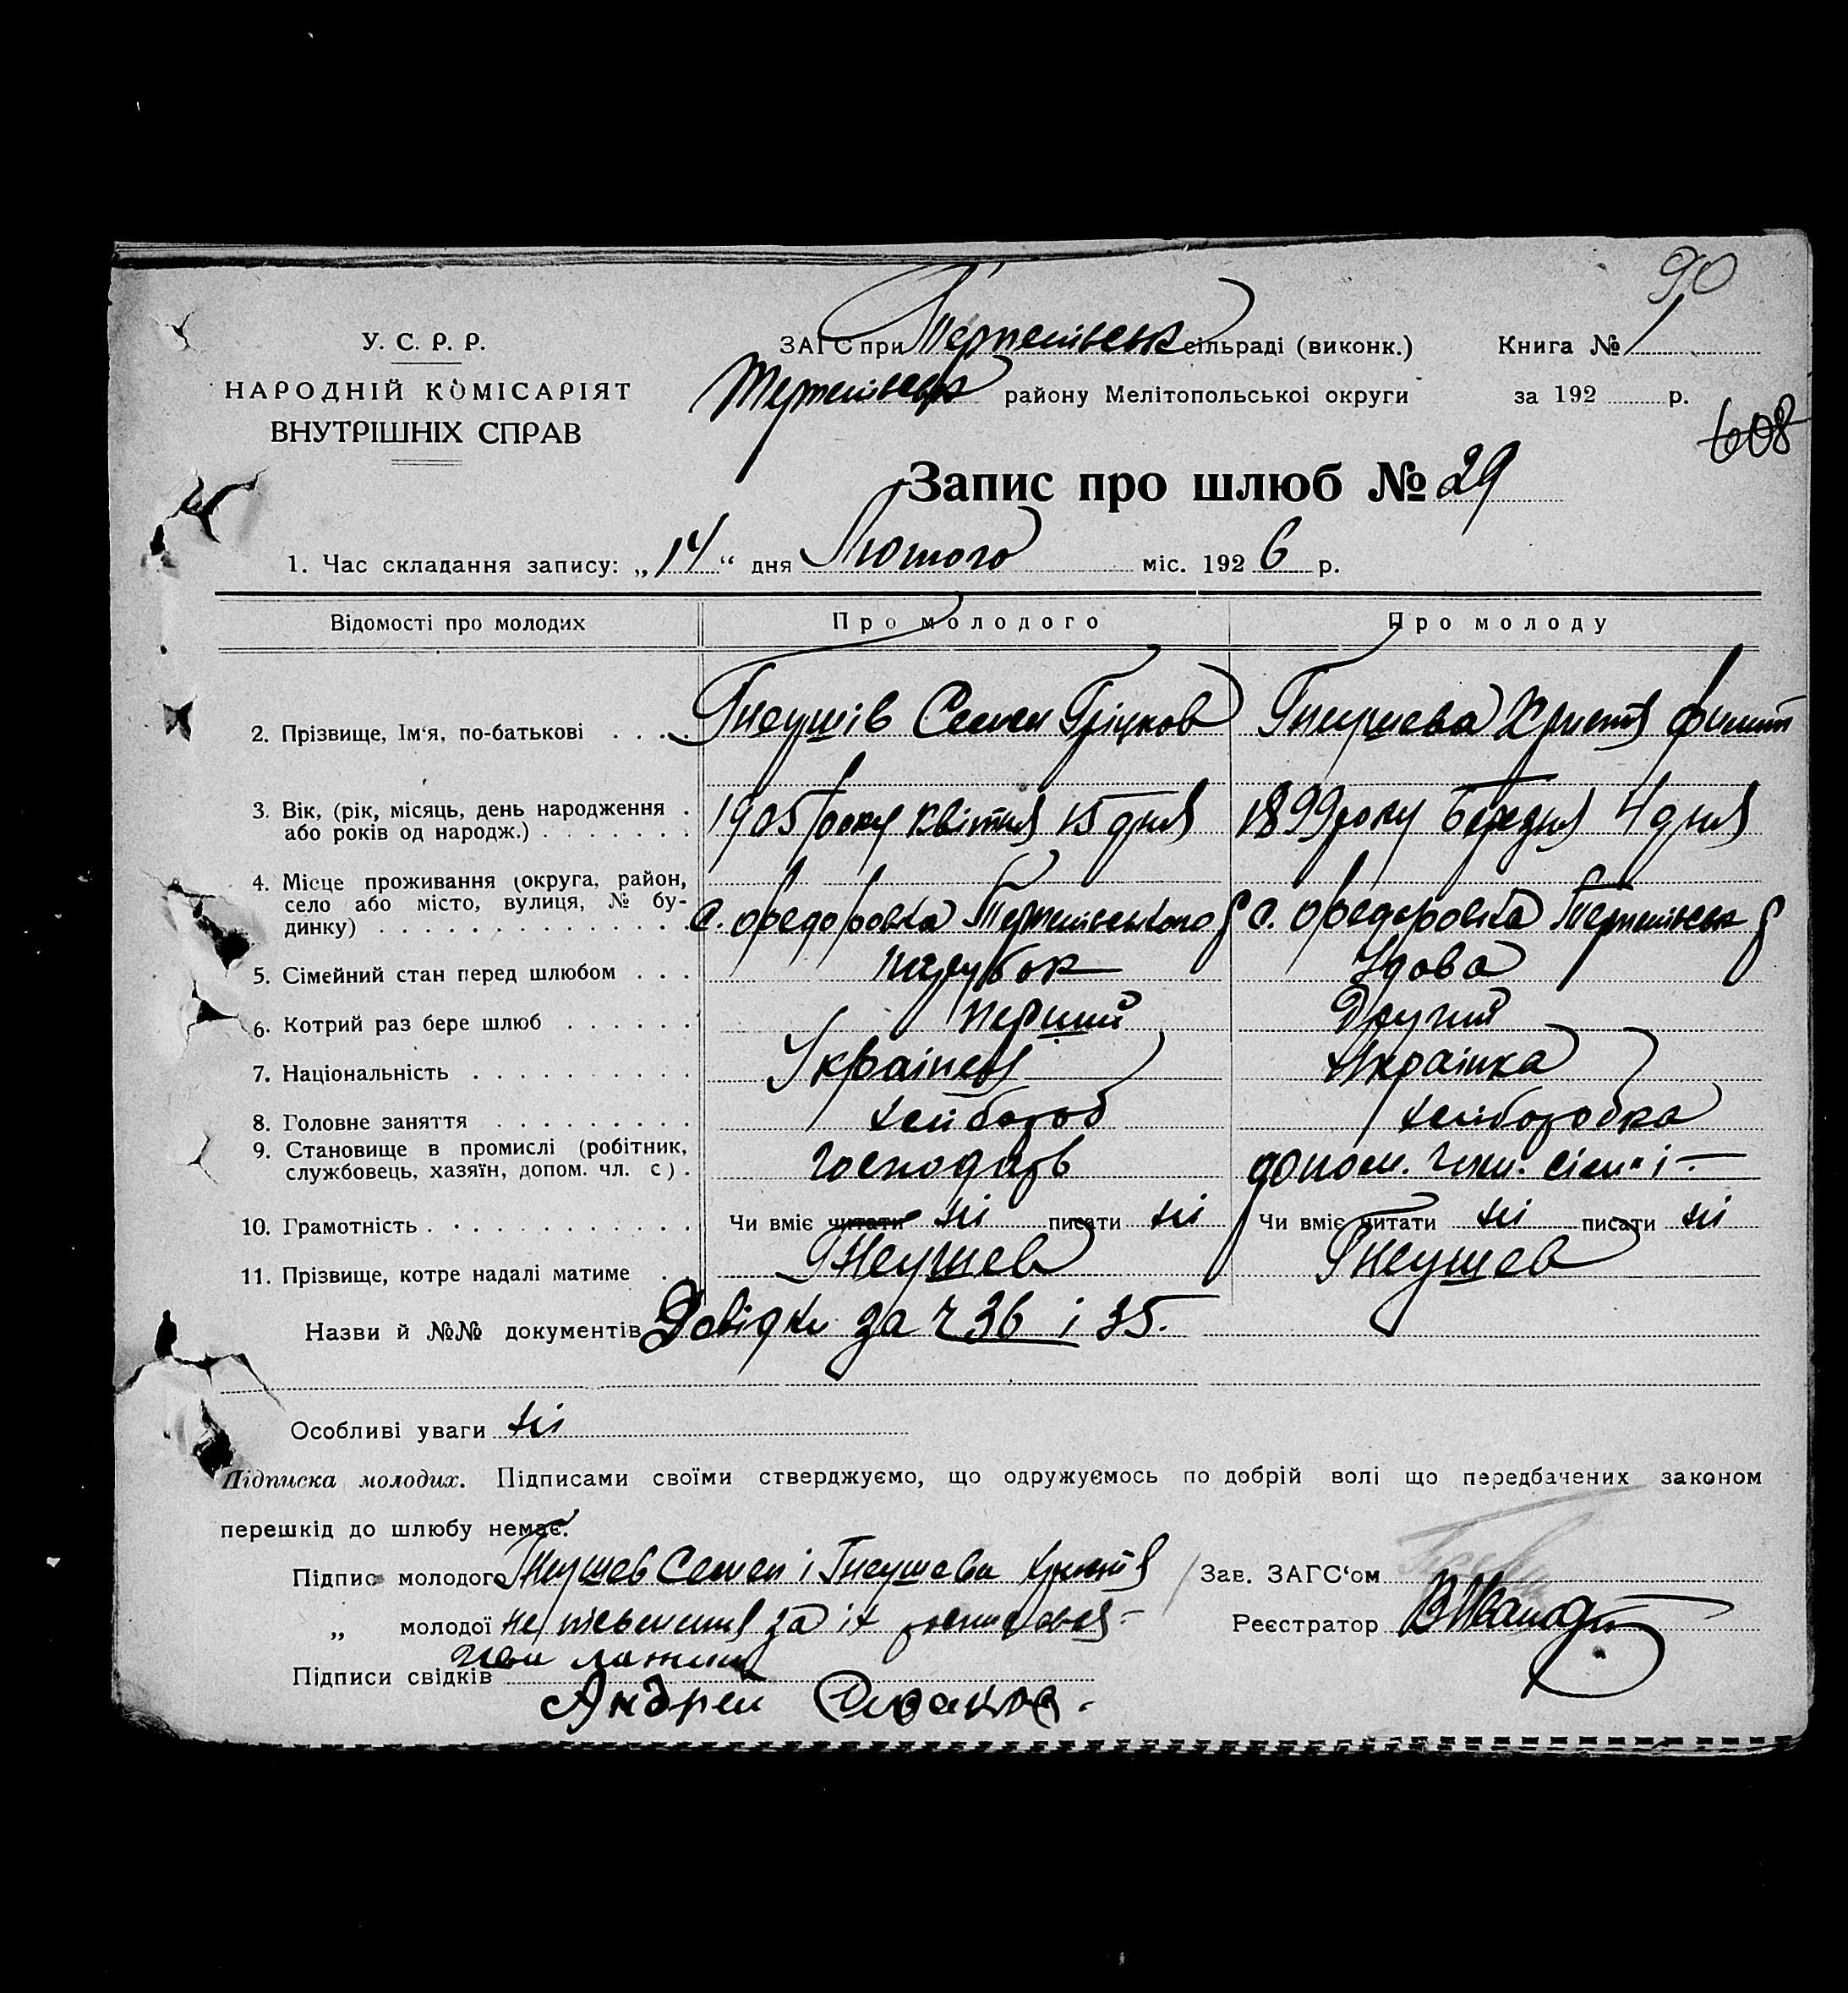 90
У. С. Р. Р.
НАРОДНІЙ КОМІСАРІЯТ
ВНУТРІШНІХ СПРАВ
ЗАГС при Терпенівськ сільраді (виконк.)
Терпенівськ району Мелітопольськоі округи
Книга № 1
за 192 р.
608
Запис про шлюб № 29
1. Час складання запису: „14“ дня Лютого міс. 1926 р.
Відомості про молодих Про молодого Про молоду
2. Прізвище, Ім‘я, по-батькові . . . Гнеушів Семен Гріцков Гнеушева Христя
3. Вік, (рік, місяць, день народження . або років од народж.) . . . . . . . 1905 року Квітня 15 дня 1899 року Березня 4 дня
4. Місце проживання (округа, район, село або місто, вулиця, № будинку) . . . . . . . . . . . . . . с. Федоровка Терпенівського р с. Федоровка Терпенівськ р
5. Сімейний стан перед шлюбом . . . парубок Удова
6. Котрий раз бере шлюб . . . . . . перший Другий
7. Національність . . . . . . . . . . Українец Українка
8. Головне заняття . . . . . . . . . хлібороб хліборобка
9. Становище в промислі (робітник, службовець, хазяїн, допом. чл. с) . господарь допом. член. сімьі
10. Грамотність . . . . . . . . . . . Чи вміє читати ні писати ні Чи вміє читати ні писати ні
11. Прізвище, котре надалі матиме . . Гнеушев Гнеушев
Назви й №№ документів Довідки за ч 36 і 35.
Особливі уваги ні
Підписка молодих. Підписами своїми стверджуємо, що одружуємось по добрій волі що передбачених законом
перешкід до шлюбу немає.
Підпис молодого Гнеушев Семен і Гнеушева Христя
Зав. ЗАГС‘ом
„ молодої не за іх
Реєстратор
Підписи свідків
Андрей